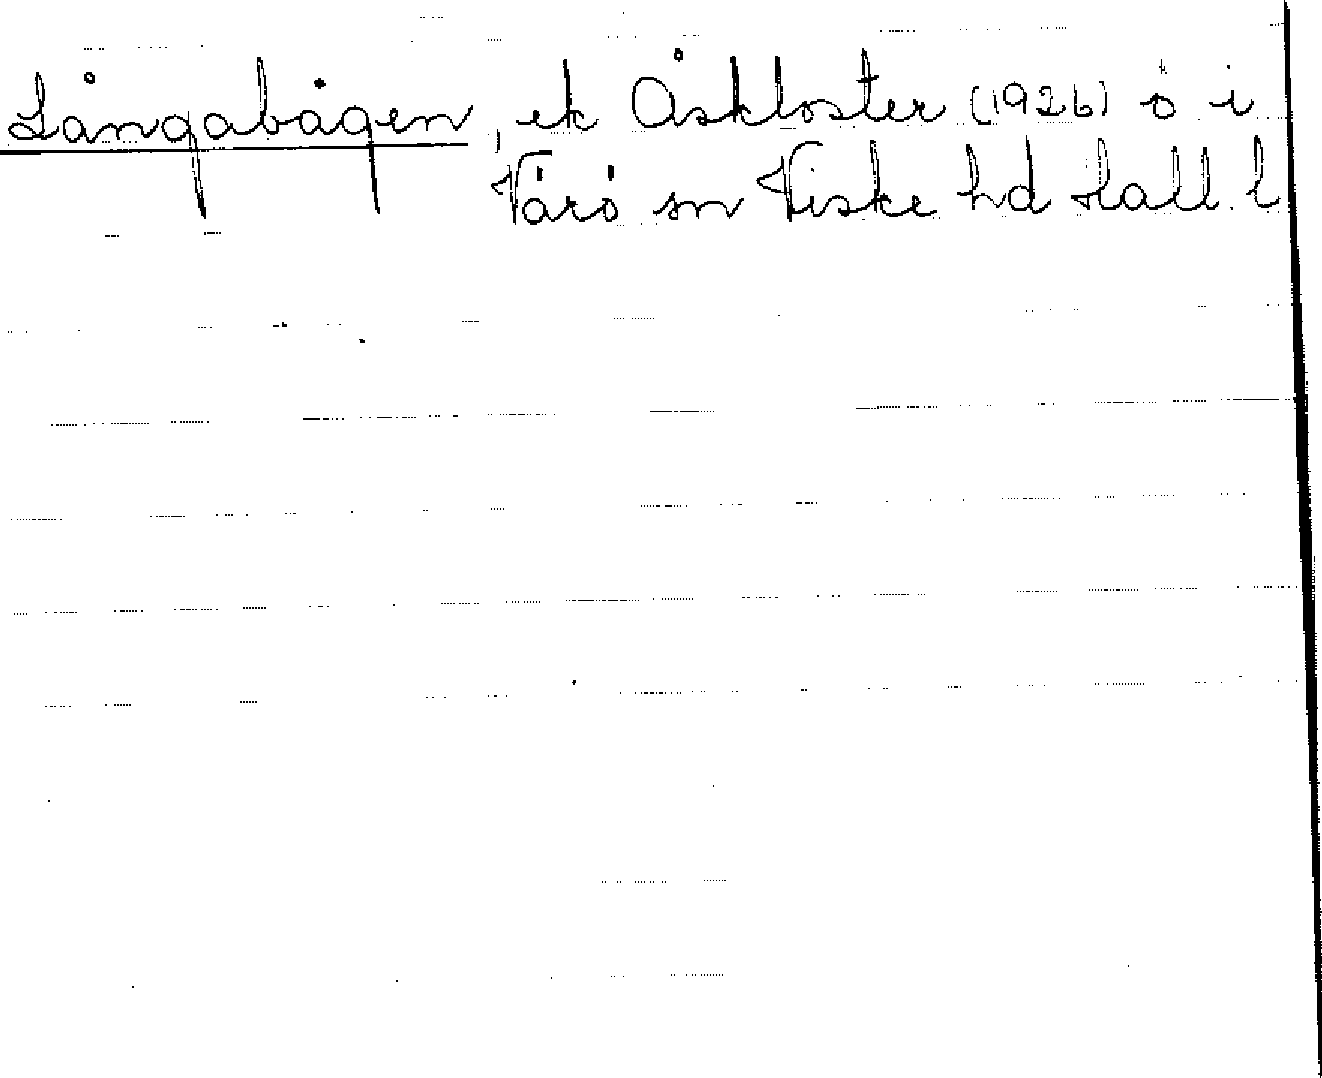 Långabågen, ek Åskloster (1926) ö i
Värö sn Viske hd Hall. l